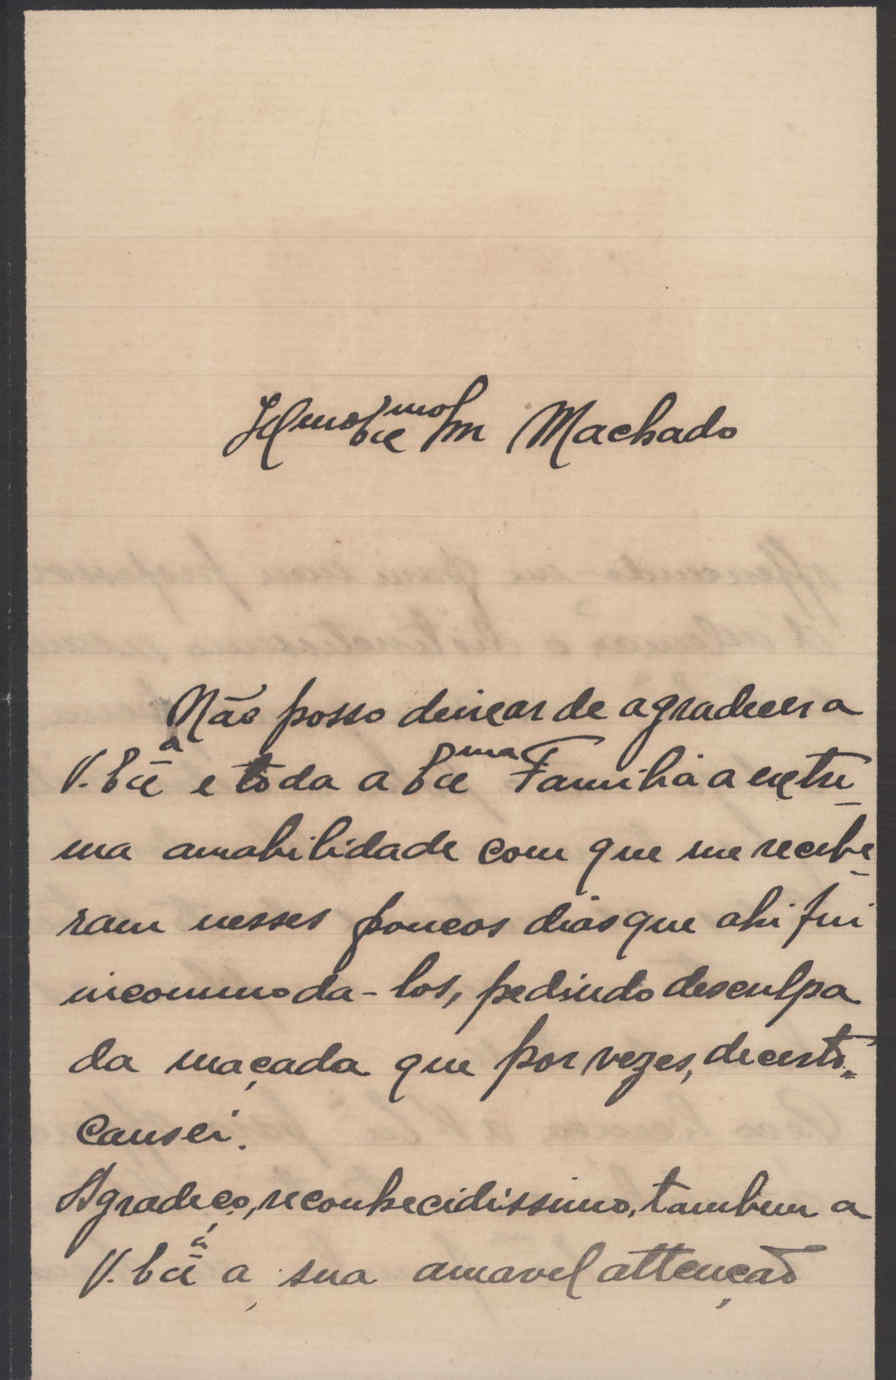 Illmo Exmo Snr Machado
Não posso deixar de agradecer a
V. Exª e toda a Exma Familia a extre-
ma amabilidade com que me recebe-
ram nesses poucos dias que ahi fui
incommoda-los, pedindo desculpa
da maçada que por vezes, decerto,
causei.
Agradeço, reconhecidissimo, tambem a
V. Exª a sua amavel attenção